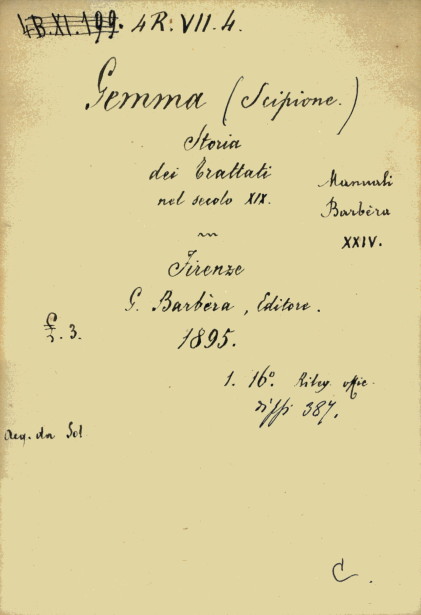 4B.XI.199. 4R.VII.4.
Gemma (Scipione.)
Storia
dei Trattati
nel secolo XIX.
Manuali
Barbèra
XXIV.
Firenze
G. Barbèra, Editore.
1895.
£. 3.
1. 16º.
387.
Acq. da Sol
C.